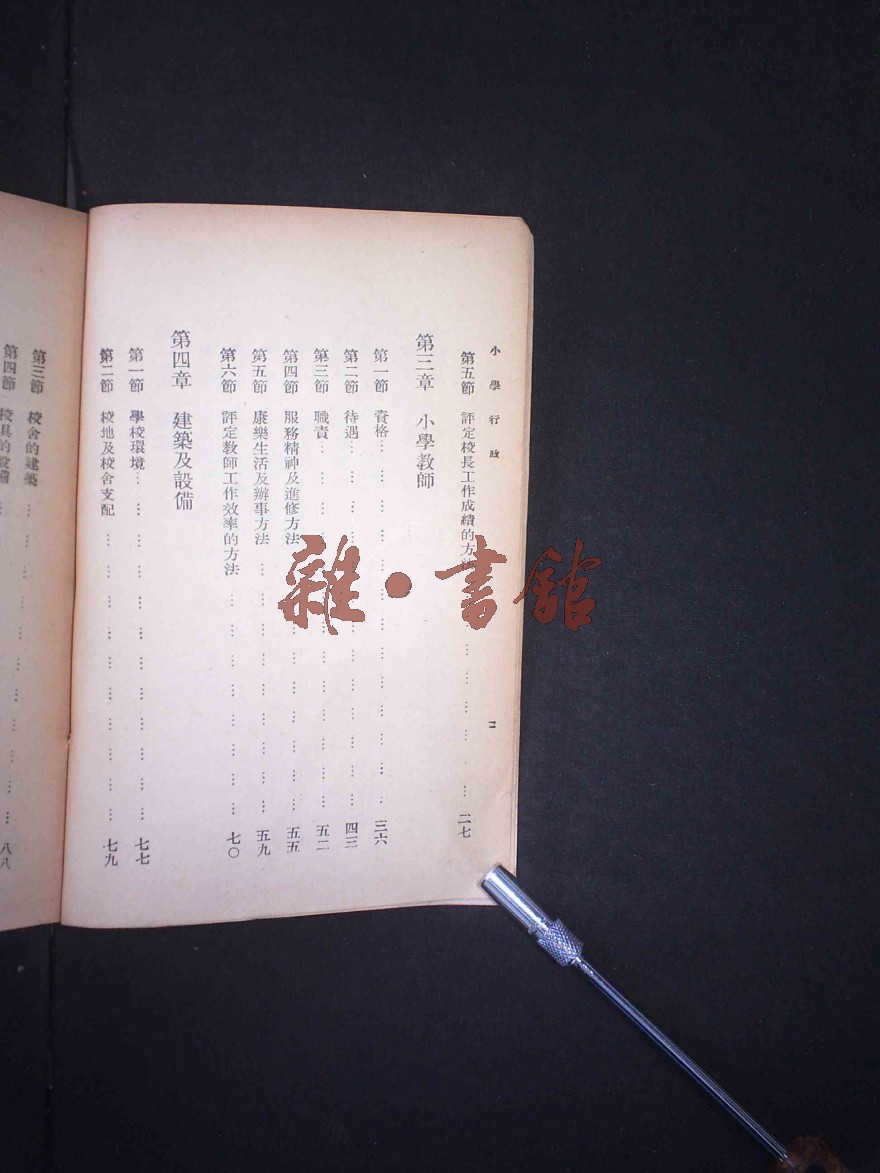 小學行政
二
第五節 評定校長工作成績的方法 … … … … … … 二七
第三章 小學教師
第一節 資格… … … … … … … … … … … … 三六
第二節 待遇… … … … … … … … … … … … 四三
第三節 職責… … … … … … … … … … … … 五二
第四節 服務精神及進修方法 … … … … … … … 五五
第五節 康樂生活及辦事方法 … … … … … … … … 五九
第六節 評定教師工作效率的方法 … … … … … … … … 七〇
第四章 建築及設備
第一節 學校環境… … … … … … … … … … … … 七七
第二節 校地及校舍支配 … … … … … … … … … … 七九
第三節 校舍的建築 … … … … … … … … … … 八八
第四節 校具的設備 …
雜·書館